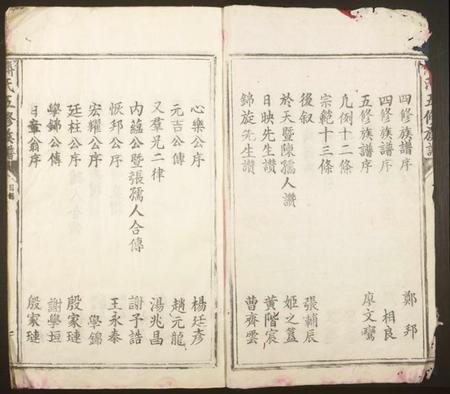 五修族譜
四修族譜序 鄭邦
四修族譜序 相良
五修族譜序 廖文鸞
凡例十二條
宗範十三條
後叙 張輔辰
於天暨陳孺人讚 姬之簋
日映先生讚 黃階宸
錦旋先生讚 曹齊雲
心樂公序 楊廷彥
元吉公傳 趙元龍
又羣兄二律 湯兆昌
內蘊公暨張孺人合傳 謝子誥
恢邦公序 王永泰
宏耀公序 學錦
廷柱公序 殷家璉
學錦公傳 謝學垣
日章翁序 殷家璉
氏五修族譜